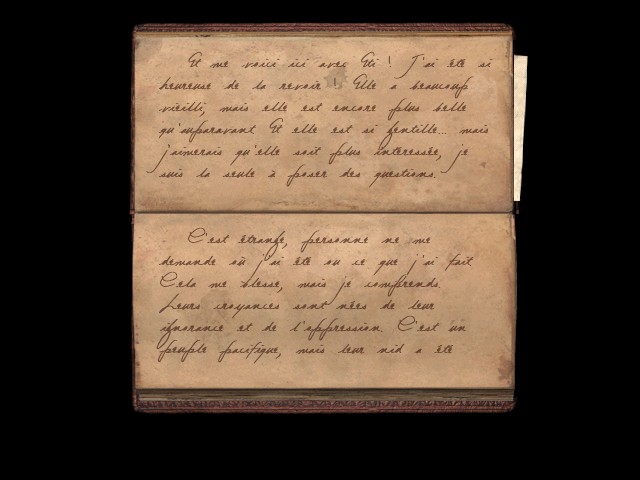 Et me voici ici avec Eti ! J'ai été si
heureuse de la revoir ! Elle a beaucoup
vieilli, mais elle est encore plus belle
qu'auparavant Et elle est si gentille... mais
j'aimerais qu'elle soit plus intéressée, je
suis la seule à poser des questions.
C'est étrange, personne ne me
demande où j'ai été ou ce que j'ai fait
Cela me blesse, mais je comprends.
Leurs croyances sont nées de leur
ignorance et de l'oppression. C'est un
peuple pacifique, mais leur nid a été